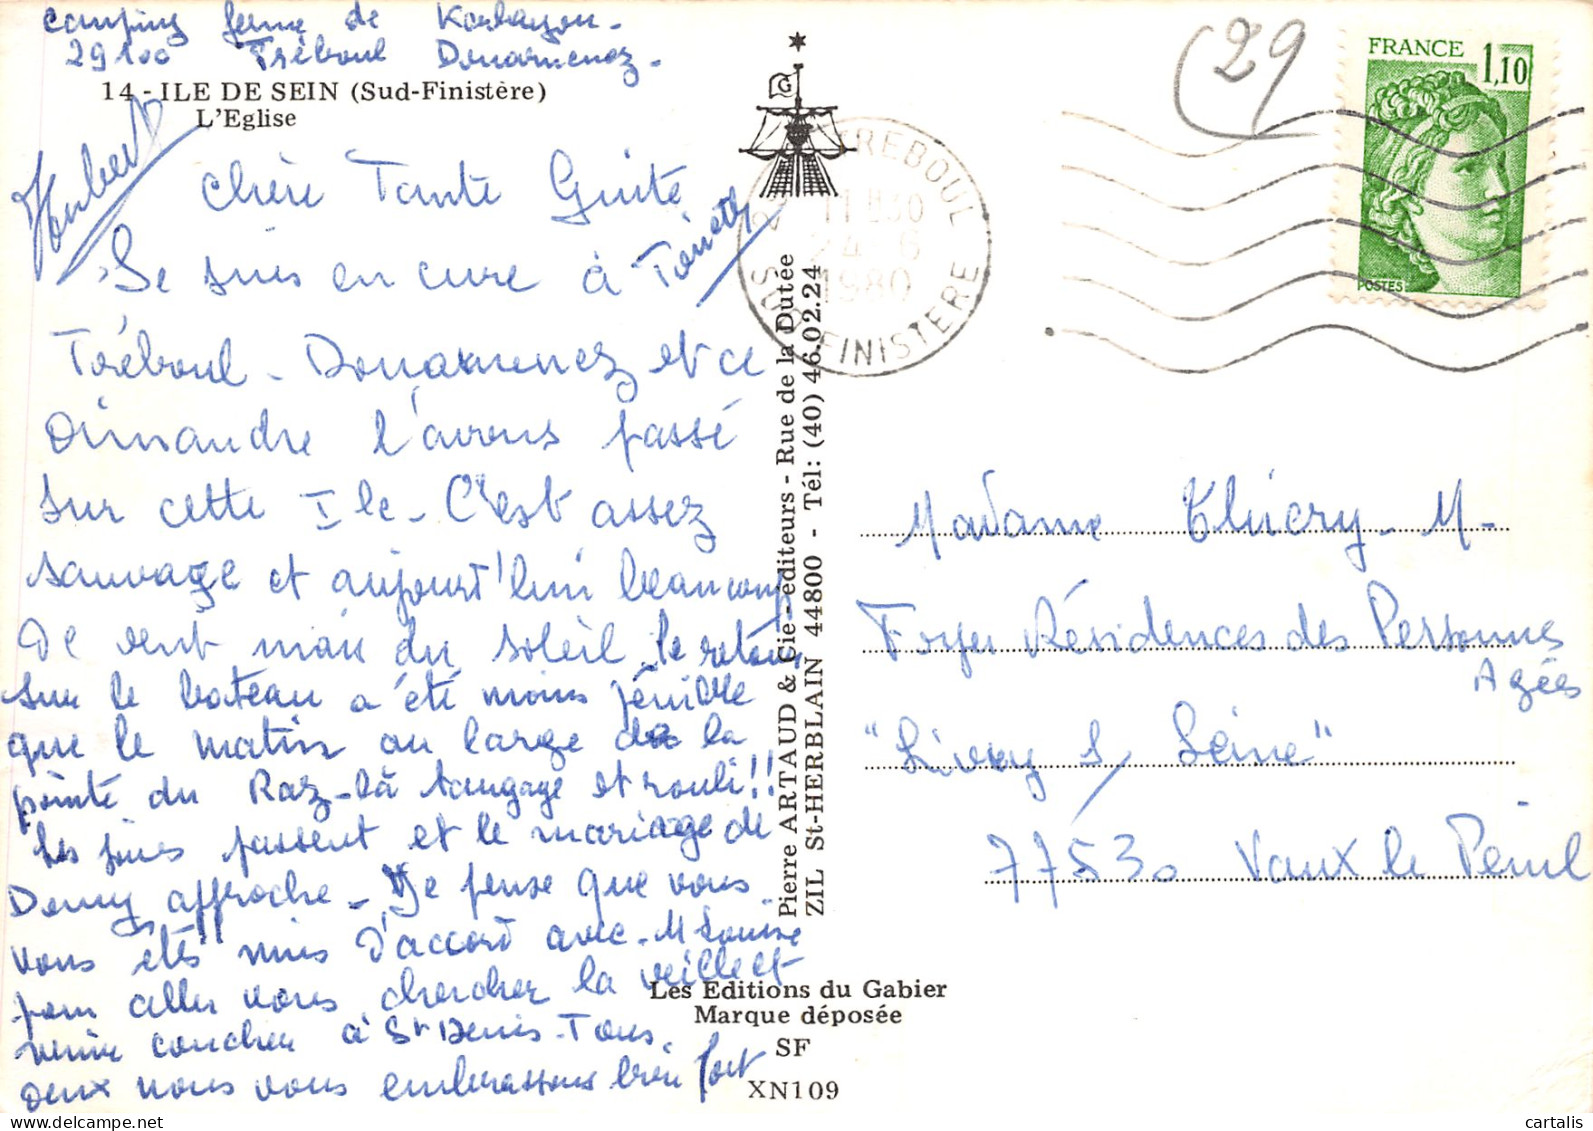 camping ferme de
29100 Tréboul Douarnenez.
14 - ILE DE SEIN (Sud-Finistère)
L'Eglise
Hubert
Chère Tante Guite
Je suis en cure à
Tréboul - Douarnenez et ce
Dimanche l'avons passé
sur cette Ile - C'est assez
sauvage et aujourd'hui beaucoup
de vent mais du soleil - le retour
sur le bateau a été moins pénible
que le matin au large de la
pointe du Raz - là tangage et rouli!!
les jours passent et le mariage de
approche - Je pense que vous
vous êtes mis d'accord avec - M Louise
pour aller vous chercher la veille et
venir coucher à St Denis - Tous
deux nous vous embrassons bien fort
Pierre ARTAUD & Cie - éditeurs - Rue de la Dutée
ZIL St-HERBLAIN 44800 - Tél: (40) 46.02.24
Les Editions du Gabier
Marque déposée
SF
XN109
G
TREBOUL
11 H30
24 - 6
1980
SUD FINISTERE
29
FRANCE 1,10
POSTES
Madame Thiery - M -
Foyer Résidences des Personnes
Agées
"Livry s/ Seine"
77530 Vaux le Penil
cartalis